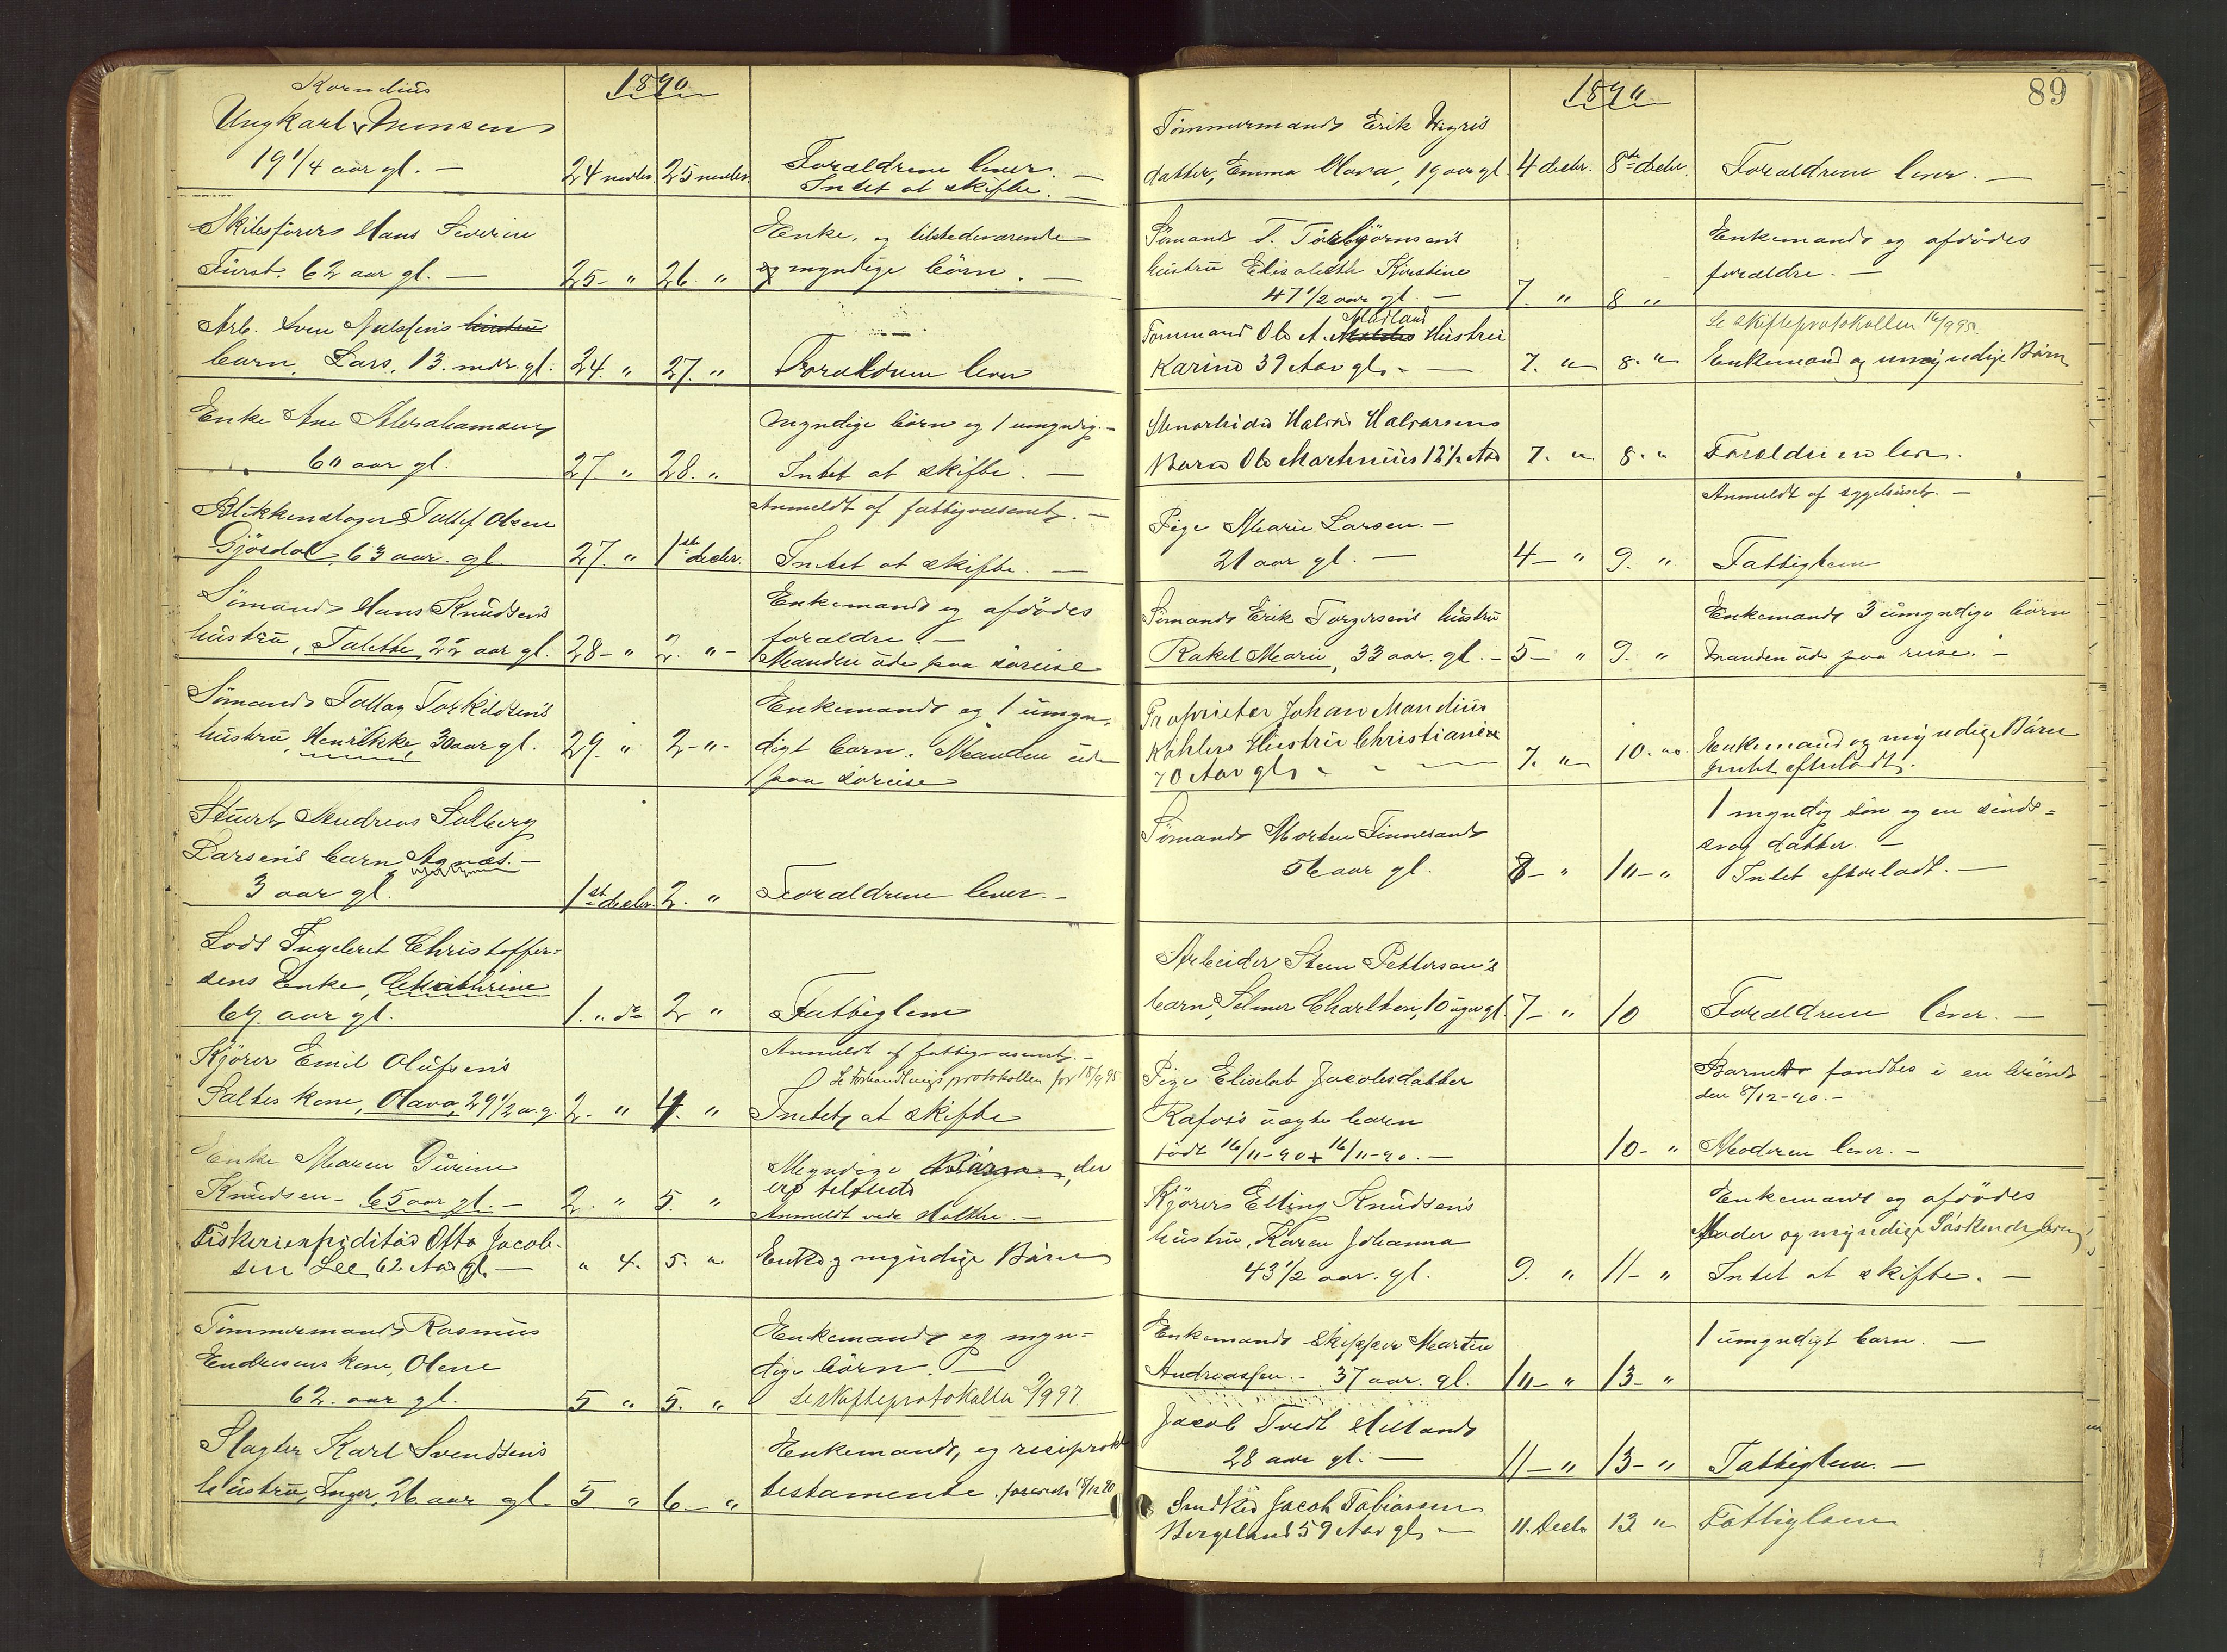 1890
Kornelius
Ungkarl Monsen
19 1/4 aar gl. — 24 novbr. 25 novbr. Forældrene lever. —
Intet at skifte. —
Skibsfører Hans Severin Enke, og tilstedeværende
Fürst. 62 aar gl. — 25 - " 26. " og myndige börn. —
Arb. Sven Nielsens hustru
barn, Lars, 13. mdr. gl. 24. " 27. " Forældrene lever
Enke Ane Abrahamsen myndige börn og 1 umyndig. -
60 aar gl. 27. " 28. " Intet at skifte. —
Anmeldt af fattigvæsenet. —
Blikkenslager Tallef Olsen
Gjösdal, 63 aar. gl. 27. " 1ste decbr. Intet at skifte. —
Sömand Hans Knudsens Enkemand og afdödes
hustru, Talette, 22 aar gl. 28 - " 2. " - forældre. —
Manden ude paa söreise
Sömand Tallag Torkildsens Enkemand og 1 umyn-
hustru, Henrikke, 30 aar gl. 29. " 2 - " - digt barn. Manden ude
paa söreise
Stuert Andreas Solberg
Larsens barn Agnæs. —
3 aar gl. 1st decbr. 2. " Forældrene lever. -
Lods Ingebret Christoffer-
sens Enke, Cathrine
67. aar gl. 1. " do 2 " Fattiglem
Anmeldt af fattigvæsenet. -
Kjörer Emil Olufsens Se Forhandlingsprotokollen for 18/9 95
Saltes kone, Olava, 29 1/2 a. g. 2. " 4. " Intet at skifte
Enke Maren Gurine Myndige Börn, der
er tilstede
Knudsen - 65 aar gl. - 2. " 5. " Anmeldt ved Holthe. —
Fiskeriexpiditør Otto Jacob-
sen Lee 62 Aar gl. — " 4. 5. " Enke og myndige Börn
Tömmermand Rasmus Enkemand og myn-
Endresens kone, Olene dige börn. —
62. aar gl. 5 " 5. " Se skifteprotokollen 9/9 97.
Slagter Karl Svendsens Enkemand, og resiprokt
hustru, Inger, 26 aar gl. 5 " 6 - " testamente. forevist 15/12 90
89
1890
Tömmermand Erik Wigris
datter, Emma Mara, 19 aar gl. 4 decbr. 8de decbr. Forældrene lever. —
Sömand T. Törbjörnsens Enkemand og afdödes
hustru Elisabeth Kirstine forældre. —
47 1/2 aar gl. — 7. " 8 "
Madland Se skifteprotokollen 16/9 95.
Tommand Ole A. Hustru
Karine 39 Aar gl. — 7. " 8. " Enkemand og umyndige Börn
Stenarbeider Halvor Halvorsens
Barn Ole Martinius 12 1/2 Aar 7. " 8. " Forældrene lever.
Anmeldt af sygehuset. —
Pige Marie Larsen. —
21 aar gl. — 4 - " 9. " Fattiglem
Sömand Erik Torgersens hustru Enkemand 3 umyndige börn
Rakel Marie, 33 aar. gl. - 5 - " 9. " Manden ude paa reise. —
Proprietær Johan Mandius
Köhlers Hustru Christiane Enkemand og myndige Börn
70 Aar gl. — 7. " 10. " Intet efterladt.
1 myndig sön og en sinds-
Sömand Morten Finnesand svag datter. —
56 aar gl. 8 - " 10 - " Intet efterladt. —
Arbeider Steen Pettersen's
barn, Selmer Charlton, 10 uger gl. 7 - " 10 Forældrene lever. —
Pige Eliselet Jacobsdatter Barnet fandtes i en brönd
den 8/12-90. -
Rafoss uægte barn
födt 16/11-90 + 16/11-90. — 10 - " Moderen lever. -
Kjörer Elling Knudsens Enkemand og afdödes
hustru, Karen Johanna Moder og myndige Söskendebörn
43 1/2 aar. gl. 9. " 11 - " Intet at skifte. —
Enkemand Skipper Martin 1 umyndigt barn. —
Andreassen. - 37 aar. gl. 10 - " 13 - "
Jacob Tvedt Helland
28 aar gl. — 11 - " 13 - " Fattiglem. —
Jacob Tobiassen
Bergeland 59 Aar gl. — 11. Decbr 13 " Fattiglem